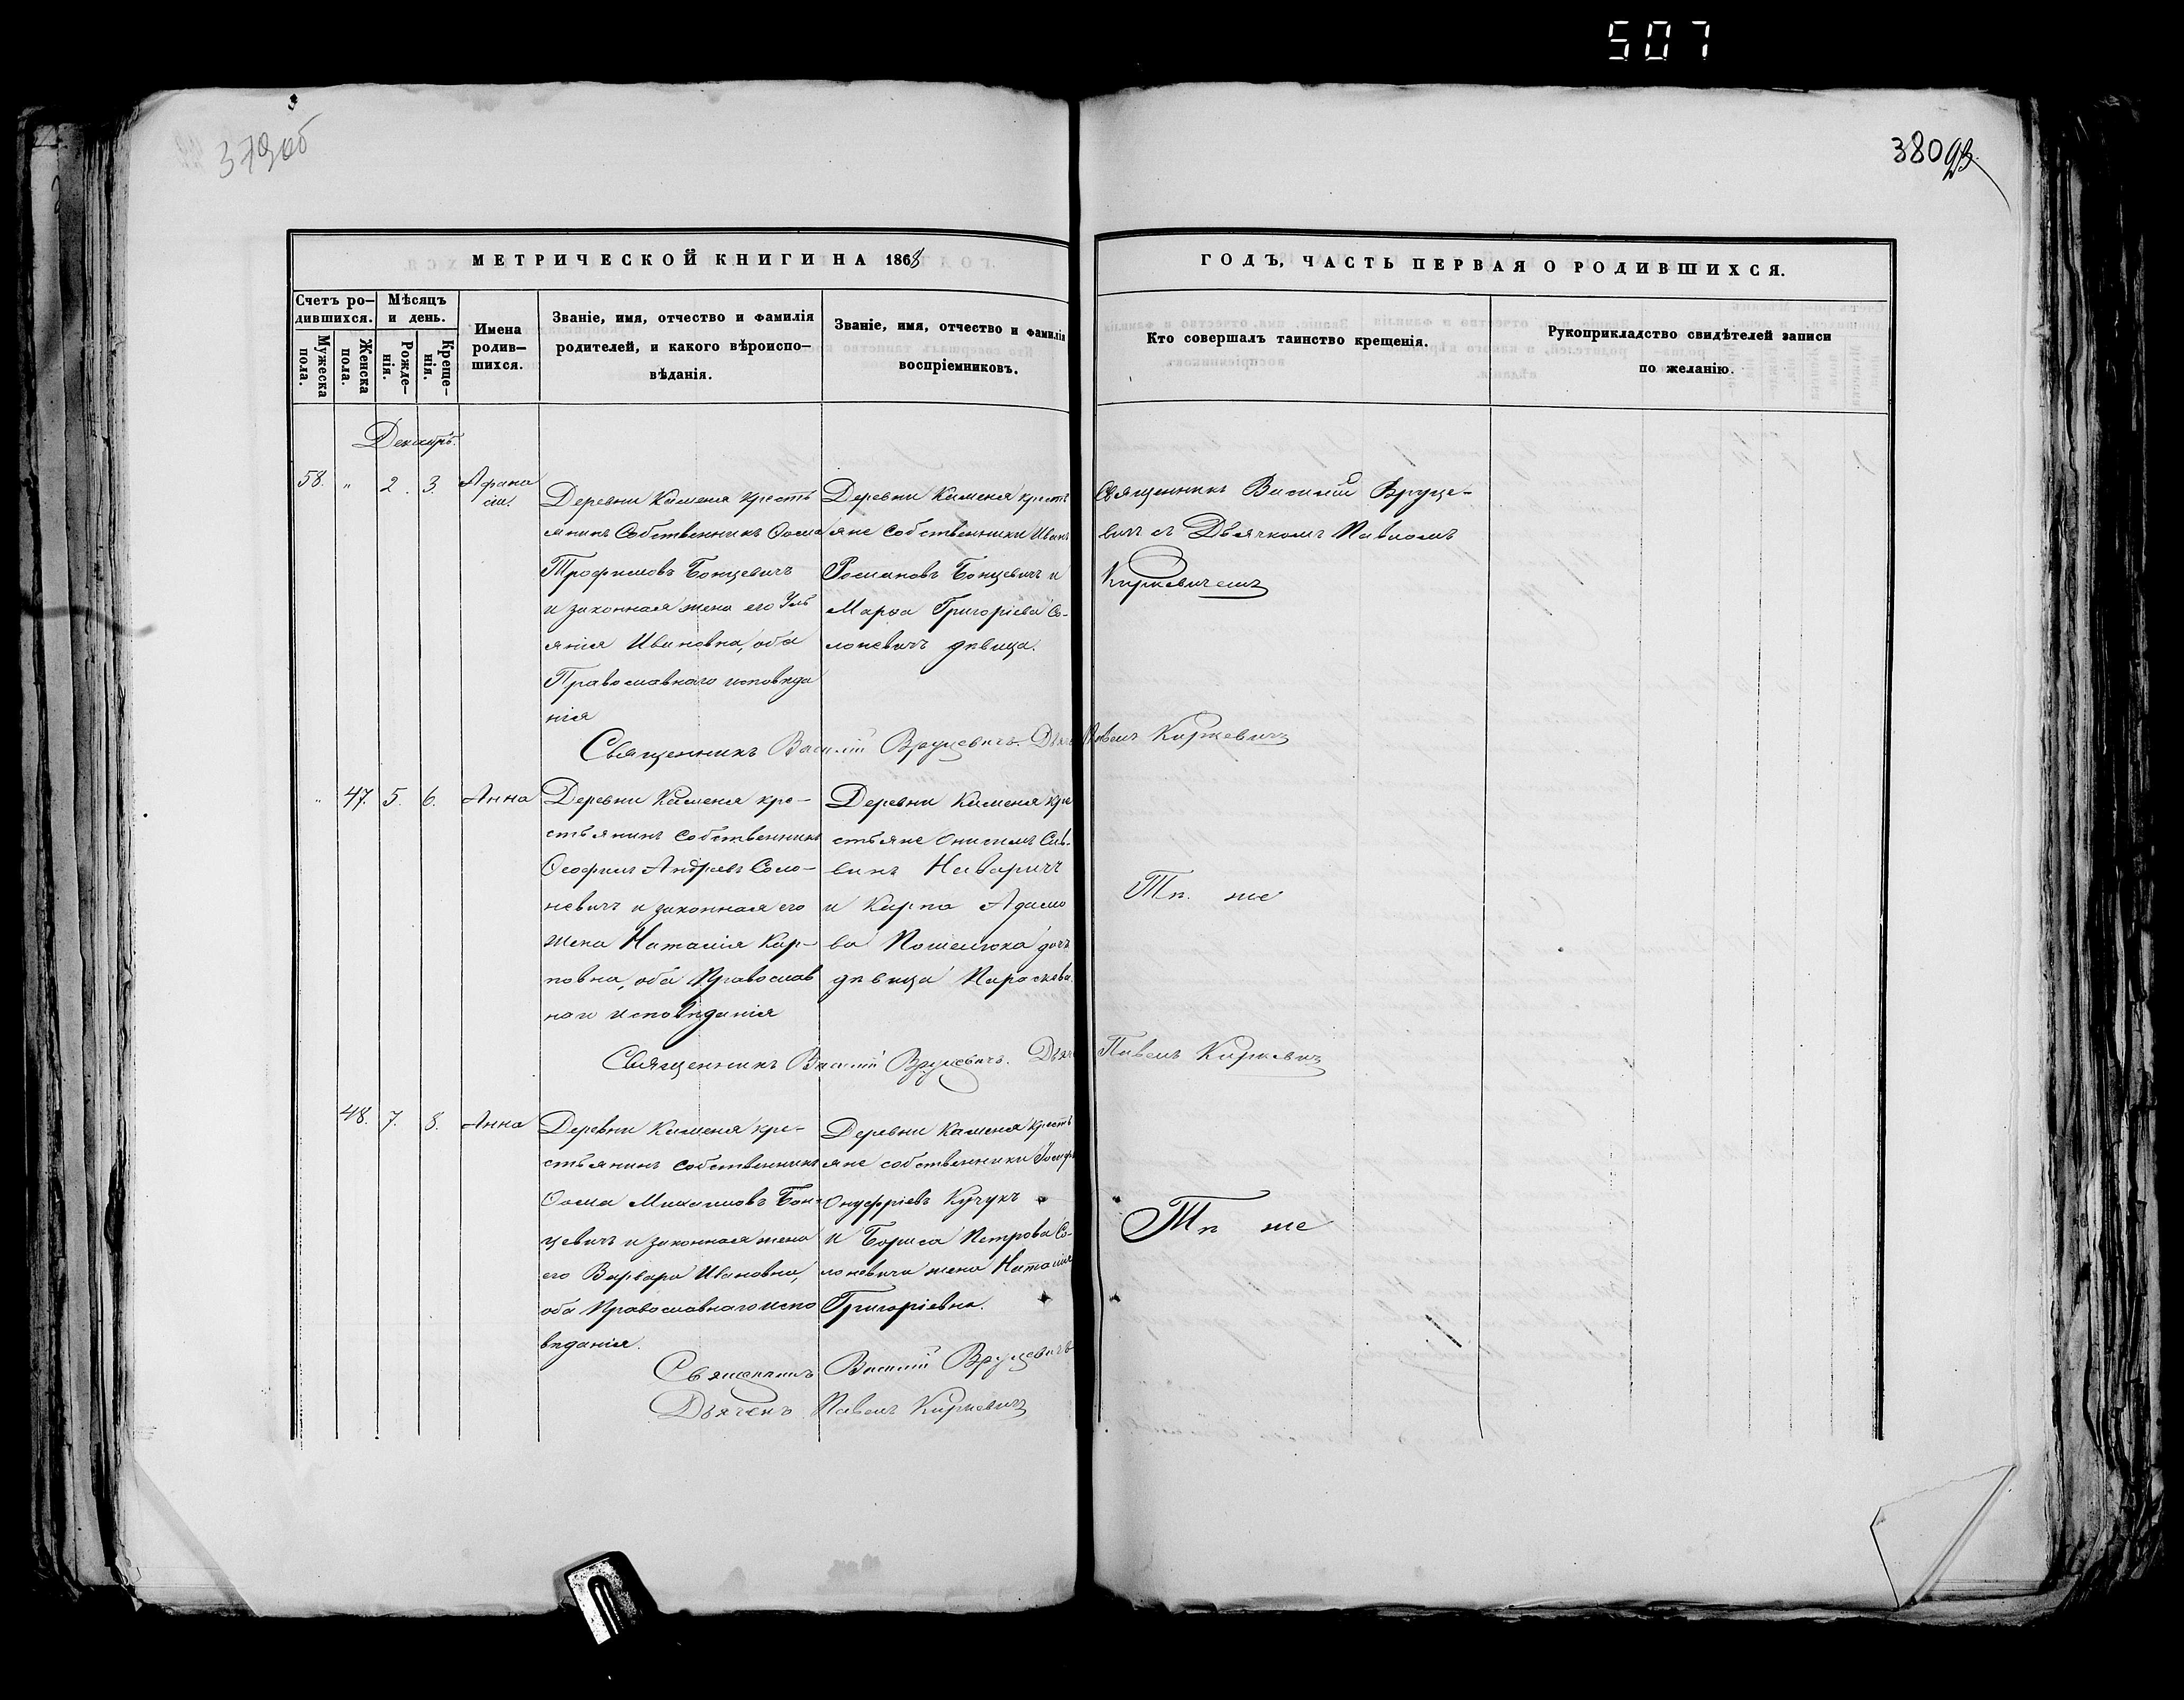 507
379об
380
93.
МЕТРИЧЕСКОЙ КНИГИ НА 1868
ГОДЪ, ЧАСТЬ ПЕРВАЯ О РОДИВШИХСЯ.
Счетъ ро-
дившихся.
Мужеска
пола.
Женска
пола.
Мѣсяцъ
и день.
Рожде-
нія.
Креще-
нія.
Имена
родив-
шихся.
Званіе, имя, отчество и фамилія
родителей, и какого вѣроиспо-
вѣданія.
Званіе, имя, отчество и фамилія
воспріемниковъ.
Кто совершалъ таинство крещенія.
Рукоприкладство свидѣтелей записи
по желанію.
Декабрь.
58. " 2. 3. Афана
сій.
Деревни Каменя кресть
янинъ Собственникъ Ѳома
Трофимовъ Бонцевичъ
и законная жена его Уль
янія Ивановна, оба
Православнаго исповѣда
нія
Деревни Каменя кресть
яне собственники Иванъ
Романовъ Бонцевичъ и
Марѳа Григоріева Со-
лоневичъ дѣвица.
Священникъ Василій Вруце-
вичъ съ Дьячкомъ Павломъ
Киркевичемъ
Священникъ Василій Вруцевичъ. Дьяч Павелъ Киркевичъ
" 47. 5. 6. Анна
Деревни Каменя кре-
стьянинъ собственникъ
Ѳеофилъ Андреевъ Соло-
невичъ и законная его
жена Наталія Кар-
повна, оба Православ
наго исповѣданія
Деревни Каменя кре
стьяне Онисимъ Сав-
винъ Наваричъ
и Карпа Адамо
ва Пошелюка дочь
дѣвица Параскева.
Тѣ же
Священникъ Василій Вруцевичъ. Дьяч Павелъ Киркевичъ
48. 7. 8. Анна
Деревни Каменя кре-
стьянинъ собственникъ
Ѳома Максимовъ Бон-
цевичъ и законная жена
его Варвара Ивановна,
оба Православнаго испо
вѣданія.
Деревни Каменя кресть
яне собственники Іосифъ
Онуфріевъ Кучукъ
и Бориса Петрова Со-
лоневича жена Наталія
Григоріевна.
Тѣ же
Священникъ Василій Вруцевичъ
Дьячекъ Павелъ Киркевичъ